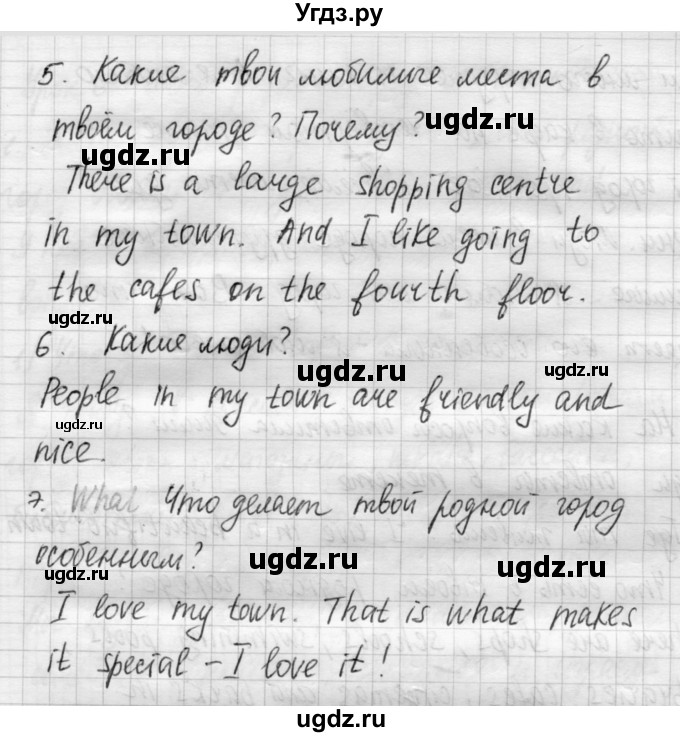 Угдз.ру
5. Какие твои любимые места в
твоём городе? Почему? ugdz.ru
ugdz.ru ugdz.ru
There is a large shopping centre
in my town. And I like going to
the cafes on the fourth floor.
ugdz.ru
6. Какие люди?
ugdz.ru ugdz.ru
People in my town are friendly and
ugdz.ru
nice.
7. What Что делает твой родной город
особенным? ugdz.ru ugdz.ru
ugdz.ru
I love my town. That is what makes
it special - I love it!
ugdz.ru
ugdz.ru